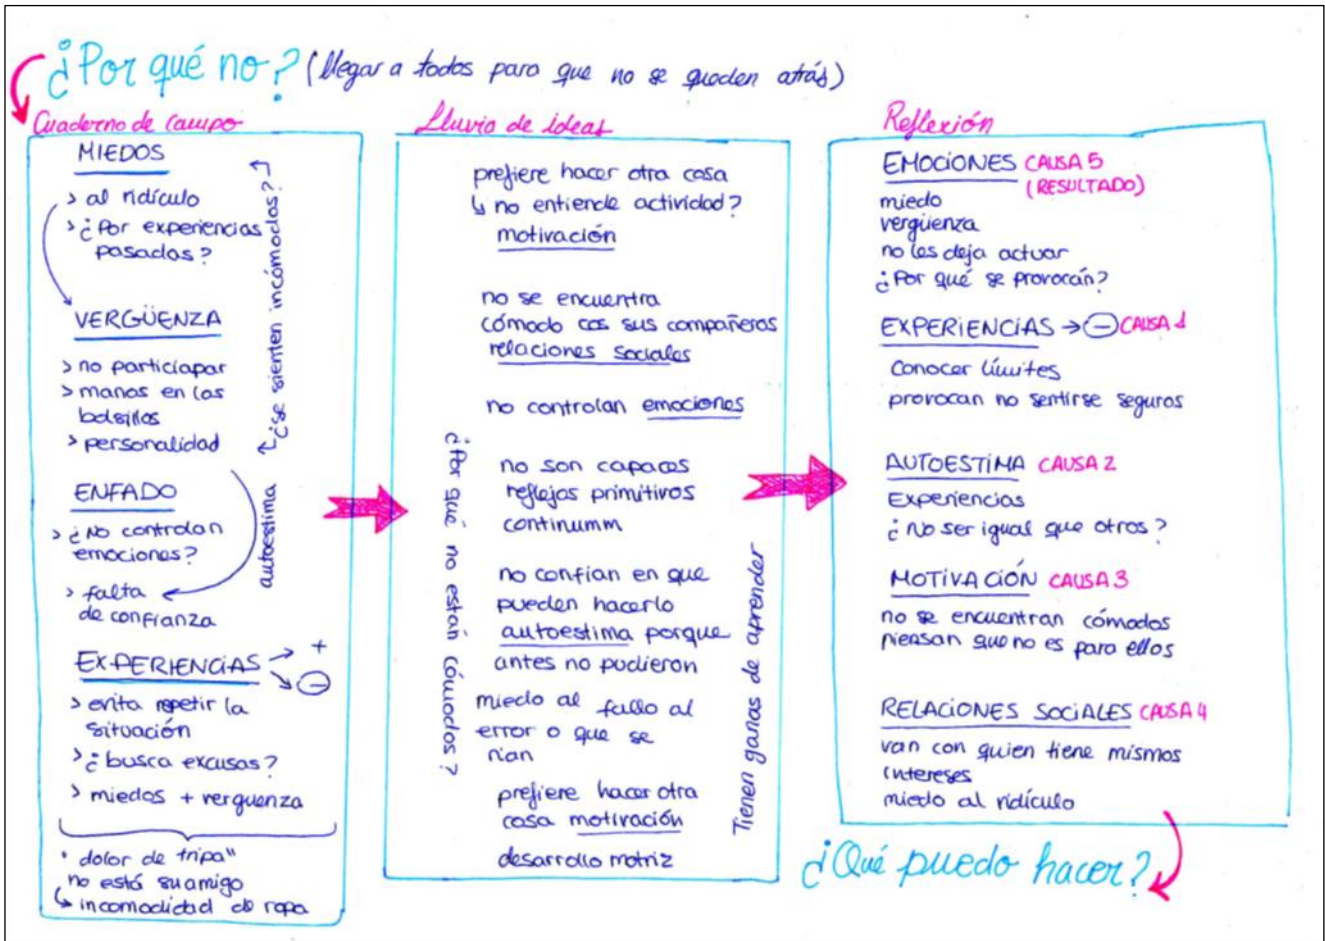 ¿Por qué no? (llegar a todos para que no se queden atrás)
Cuaderno de campo
MIEDOS
> al ridículo
> ¿Por experiencias
pasadas?
VERGÜENZA
> no particiapar
> manos en los
bolsillos
> personalidad
ENFADO
> ¿No controlan
emociones?
> falta
de confianza
EXPERIENCIAS → +
→ -
> evita repetir la
situación
> ¿busca excusas?
> miedos + verguenza
" dolor de tripa"
no está su amigo
↳ incomodidad de ropa
¿Se sienten incómodos?
autoestima
Lluvia de ideas
prefiere hacer otra cosa
↳ no entiende actividad?
motivación
no se encuentra
cómodo con sus compañeros
relaciones sociales
no controlan emociones
no son capaces
reflejos primitivos
continumm
no confían en que
pueden hacerlo
autoestima porque
antes no pudieron
miedo al fallo al
error o que se
rían
prefiere hacer otra
cosa motivación
desarrollo motriz
¿Por qué no están cómodos?
Tienen ganas de aprender
Reflexión
EMOCIONES CAUSA 5
(RESULTADO)
miedo
vergüenza
no les deja actuar
¿Por qué se provocan?
EXPERIENCIAS → - CAUSA 1
Conocer límites
provocan no sentirse seguros
AUTOESTIMA CAUSA 2
Experiencias
¿No ser igual que otros?
MOTIVACIÓN CAUSA 3
no se encuentran cómodos
piensan que no es para ellos
RELACIONES SOCIALES CAUSA 4
van con quien tiene mismos
intereses
miedo al ridículo
¿Qué puedo hacer?